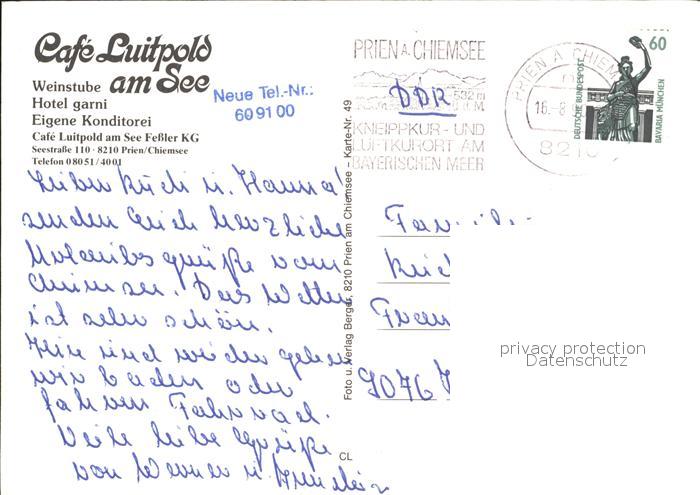 Café Luitpold
am See
Weinstube
Hotel garni
Eigene Konditorei
Café Luitpold am See Feßler KG
Seestraße 110 · 8210 Prien/Chiemsee
Telefon 08051/4001
Neue Tel.-Nr.:
609100
PRIEN A. CHIEMSEE
532 m
KNEIPPKUR- UND
LUFTKURORT AM
BAYERISCHEN MEER
DDR
PRIEN A CHIEM
16.-8
8210
60
DEUTSCHE BUNDESPOST
BAVARIA MÜNCHEN
Foto u. Verlag Berger, 8210 Prien am Chiemsee – Karte-Nr. 49
CL
u. Hanna
senden Euch herzliche
Urlaubsgrüße vom
Chiemsee. Das Wetter
ist sehr schön.
wir baden oder
fahren Fahrrad.
Viele liebe Grüße
von Werner u.
Fam
9076
privacy protection
Datenschutz